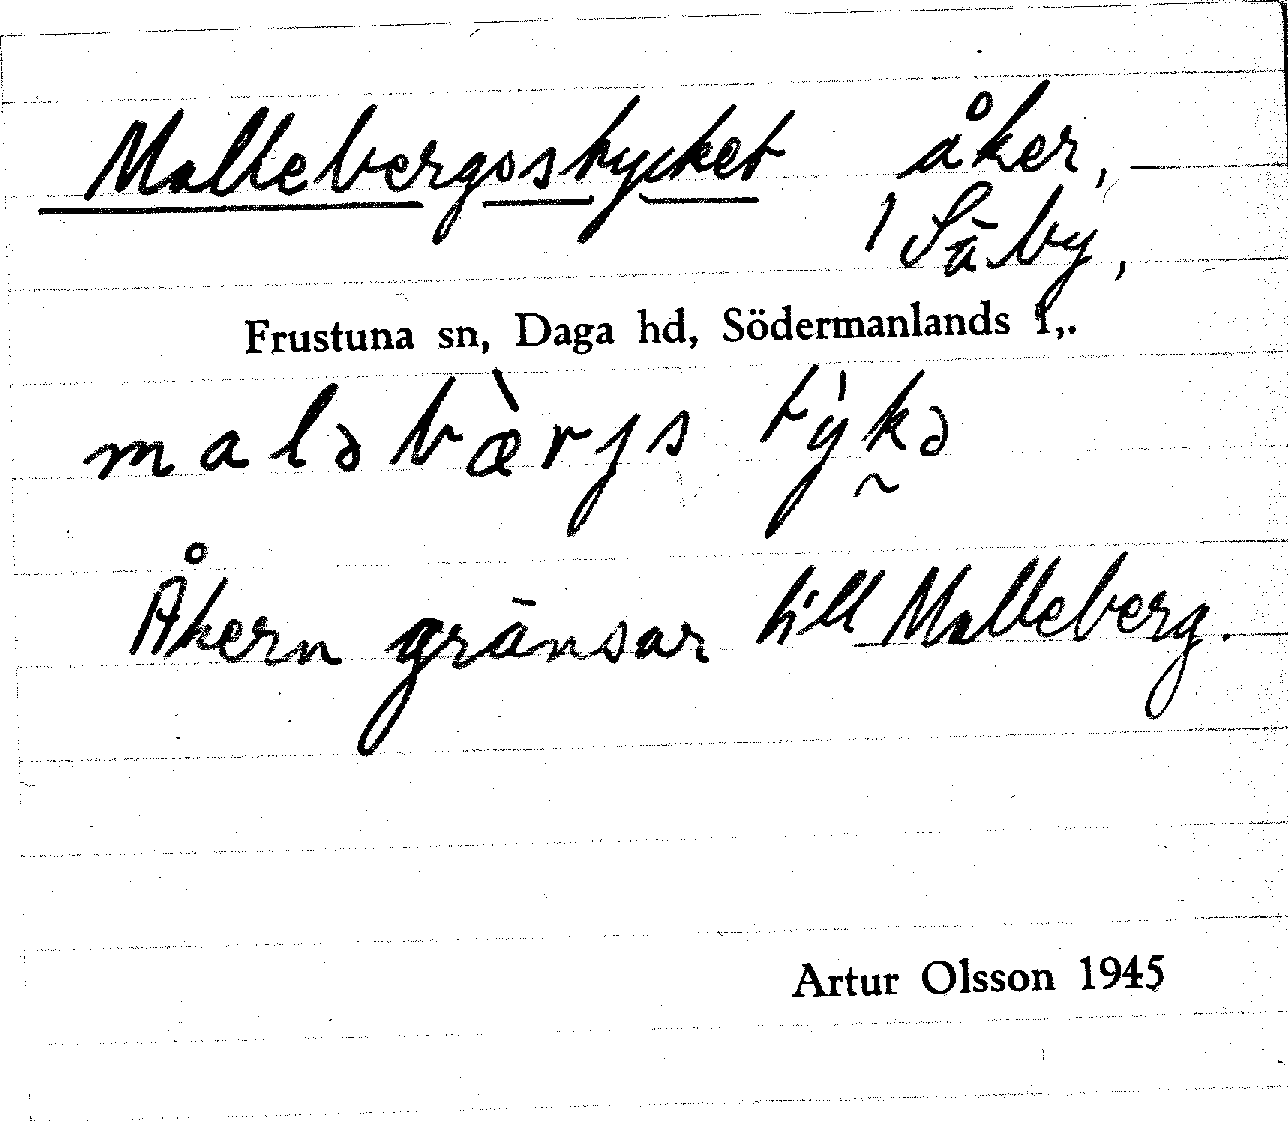 Mallebergsstycket åker,
i Säby,
Frustuna sn, Daga hd, Södermanlands l,.
maləbæ̀rjs tỳk̰ə
Åkern gränsar till Malleberg.
Artur Olsson 1945